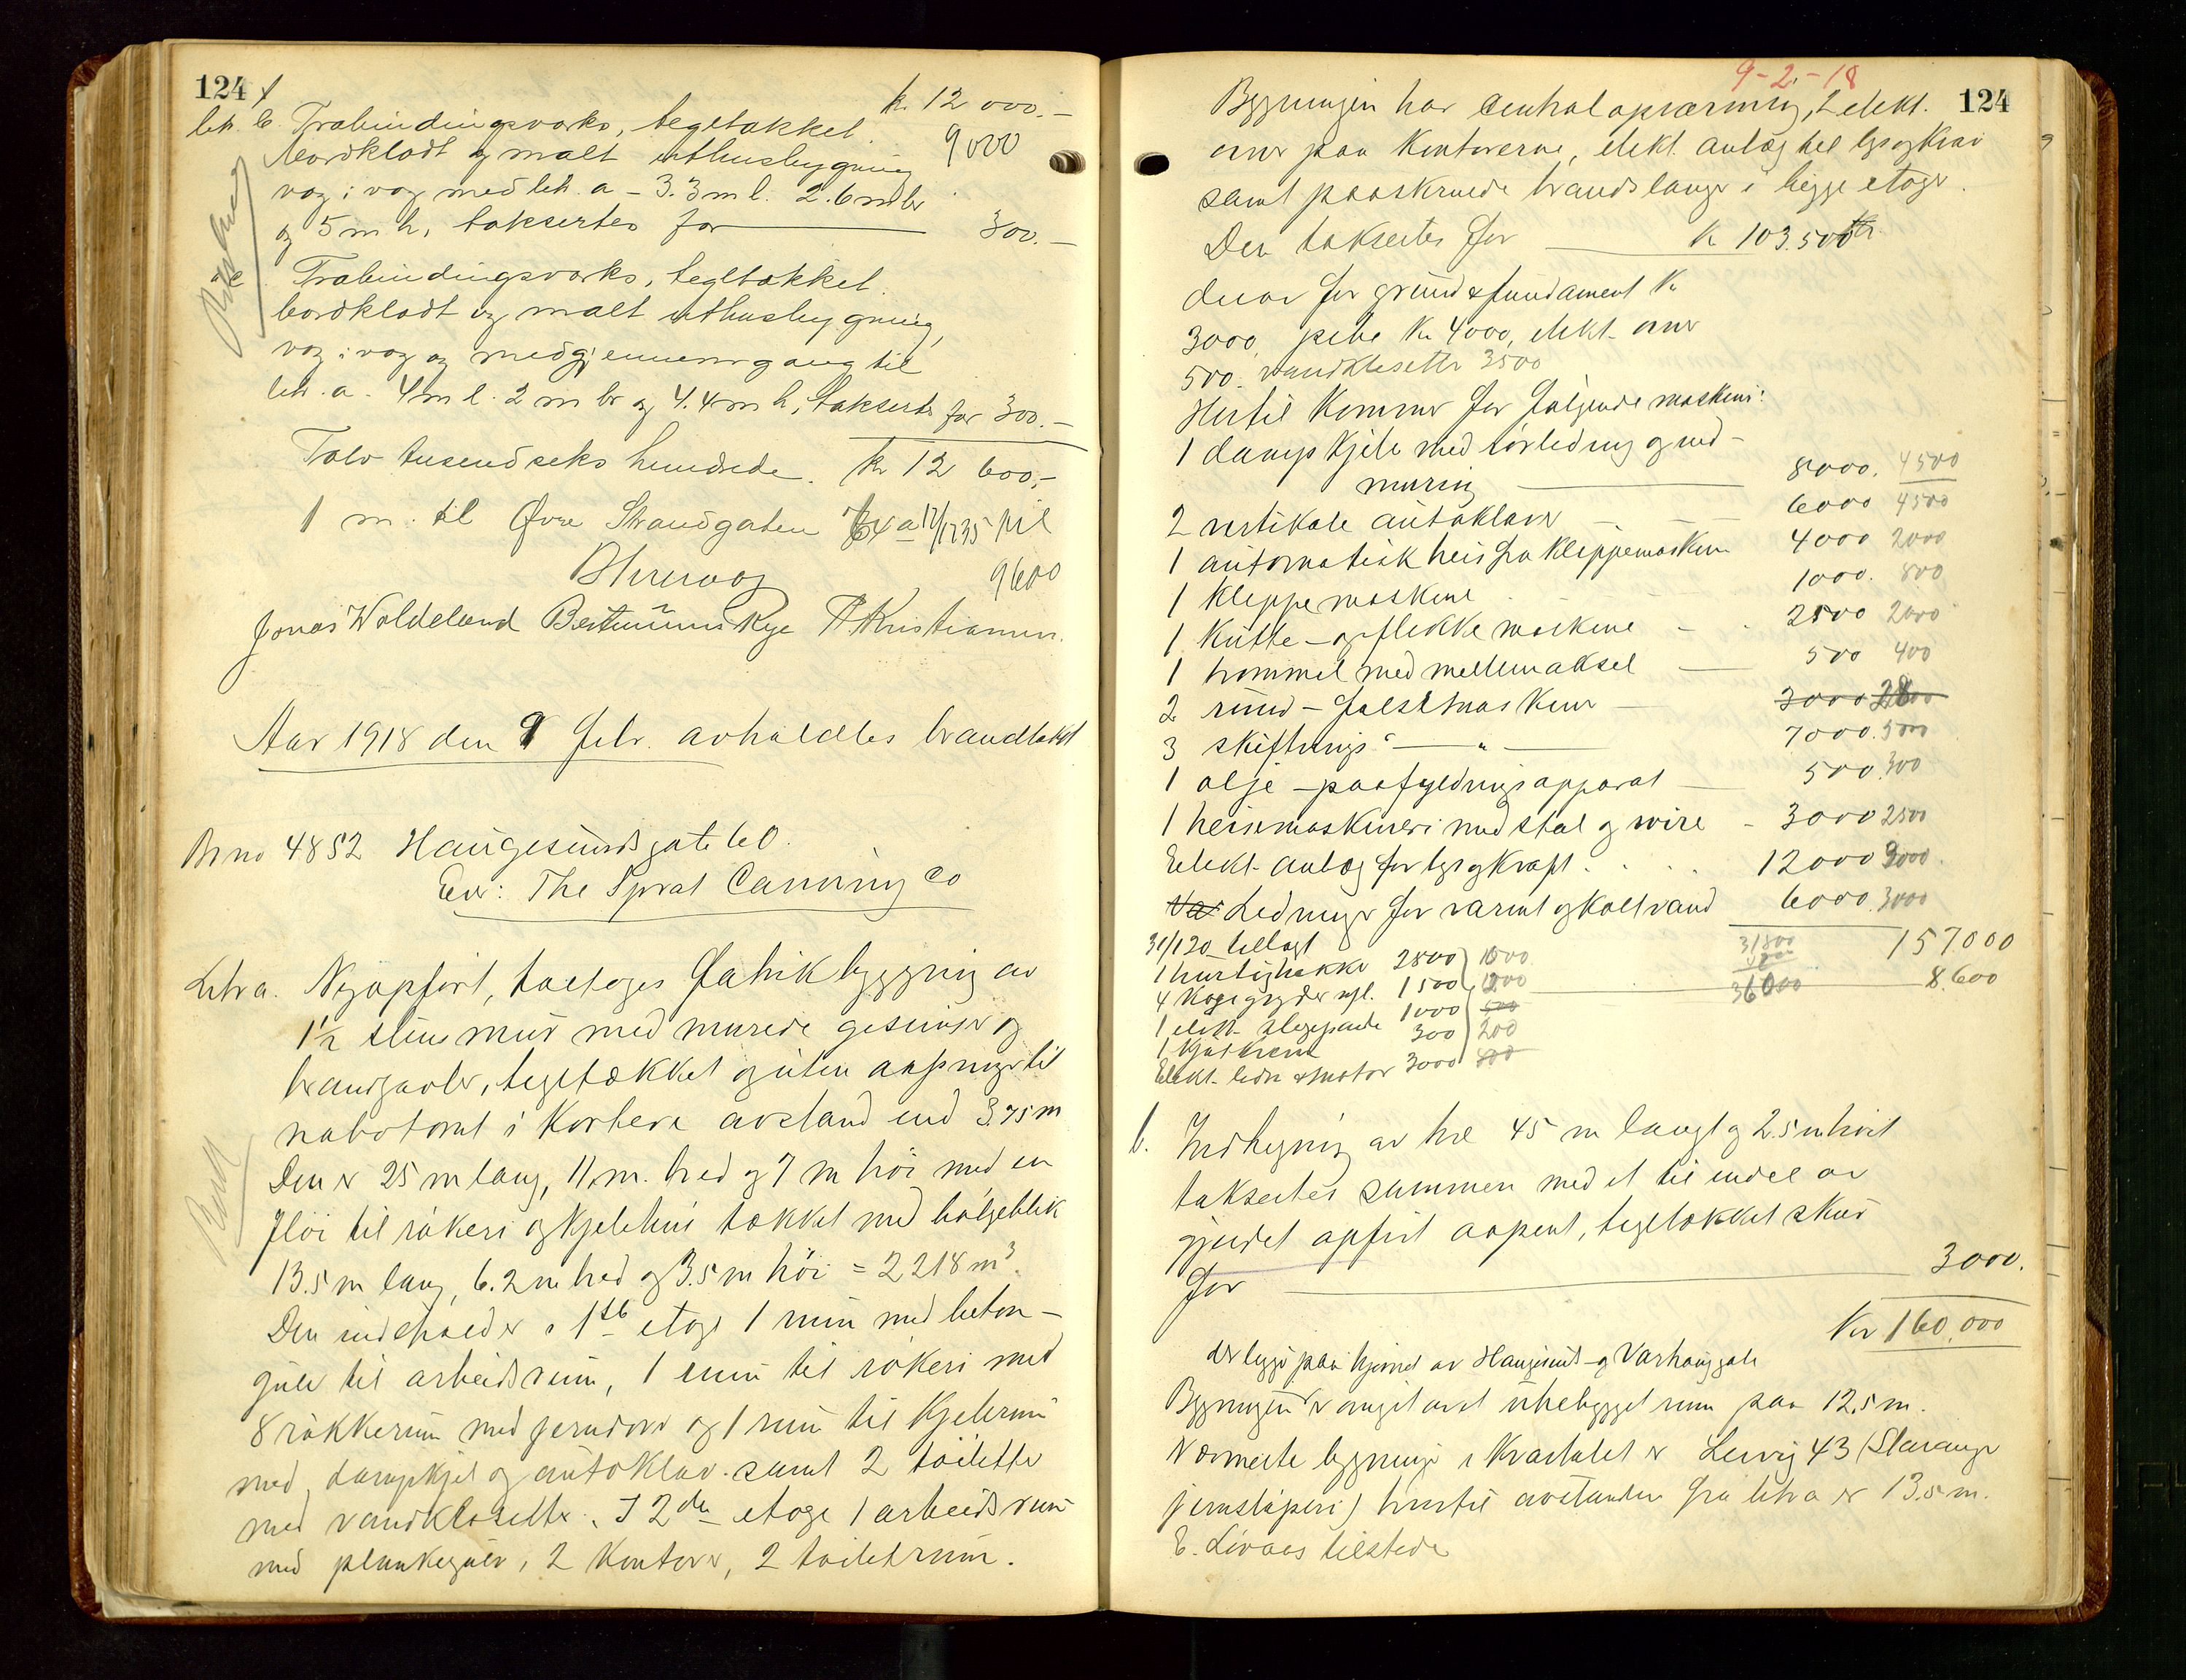 124
kr. 12 000.-
litr. b. Træbindingsværks, tegltækket
9000
bordklædt og malt uthusbygning
væg i væg med litr. a - 3.3 m l. 2.6 m br
og 5 m h, taksertes for 300.-
c Træbindingsværks, tegltækket
bordklædt og malt uthusbygning,
væg i væg og med gjennemgang til
litr. a. 4 m l. 2 m br og 4.4 m h, taksertes for 300.-
Tolv tusend seks hundrede. kr 12 600,-
1 m. til Øvre Strandgaten
9600
Jonas Woldeland Kristiansen.
Aar 1918 den 9 febr. avholdtes brandtakst
Br no 4852 Haugesundsgate 60.
Eier: The Sprat Canning Co
Litr a. Nyopført, toetages fabrikbygning av
1½ stens mur med murede gesimser og
brandgavler, tegltækket og uten aapninger til
nabotomt i kortere avstand end 3.75 m
Den er 25 m lang, 11 m. bred og 7 m høi med en
fløi til røkeri og kjelehus tækket med bølgeblik
13.5 m lang, 6.2 m bred og 3.5 m høi = 2218 m³.
Den indeholder i 1ste etage 1 rum med beton-
gulv til arbeidsrum, 1 rum til røkeri med
8 røkkerum med jerndøre og 1 rum til kjelerum
med dampkjel og autoklav. samt 2 toiletter
med vandklosetter. I 2den etage 1 arbeidsrum
med plankegulv, 2 kontorer, 2 toiletrum.
9-2-18
124
Bygningen har centralopvarming, 2 elekt.
ovner paa kontorerne, elekt. anlæg til lys og kraft
samt paaskruede brandslanger i begge etager.
Den taksertes for kr 103.500
derav for grund & fundament Kr
3000, pipe Kr 4000, elekt. ovner
500. vandklosetter 3500
Hertil kommer for følgende maskiner:
1 dampkjele med rørledning og ind-
muring 8000. 4500
2 vertikale autoklaver 6000 4500
1 automatisk heis fra klippemaskin 4000 2000
1 klippemaskine 1000. 800
1 kutte- og flekkemaskine 2500 2000
1 trommel med mellemaksel 500 400
2 rund-falsemaskiner 3000
3 skiftnings " 7000. 5000
1 olje-paafyldningsapparat 500. 300
1 heisemaskineri med stol og wire 3000 2500
Elekt. anlæg for lys og kraft 12000 9000
Ledninger for varmt og koldt vand 6000 3000
31/1 20 tillagt
31800
157.000
1 hurtighakke 2800
4 kogegryder 1500
36000
8.600
1 elekt. 1000 500
1 300 200
Elekt. ledn & motor 3000
b. Indhegning av træ 45 m langt og 2.5 m høit
taksertes sammen med et til endel av
gjerdet opført aapent, tegltækket skur
for 3000.
Kr 160.000
der ligger paa hjørnet av Haugesunds- og Varhauggate
Bygningen er omgit av et ubebygget rum paa 12.5 m.
Nærmeste bygning i kvartalet er Lervig 43 (Stavanger
jernstøperi) hvortil avstanden fra litr a er 13.5 m.
E. Løvaas tilstede